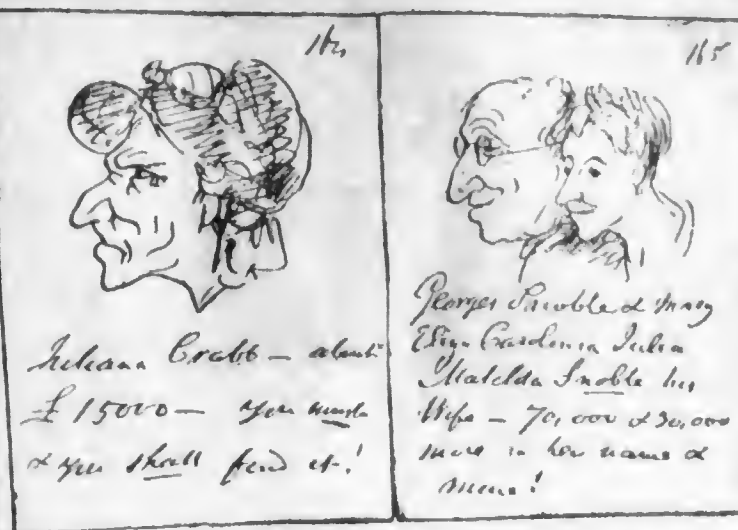 164
Juliana Crabb — about
£15000 — you must
& you shall find it!
165
Georges Snobble & Mary
Eliza Carolina Julia
Matilda Snobble his
Wife — 70,000 & 30,000
more in her name &
mine!